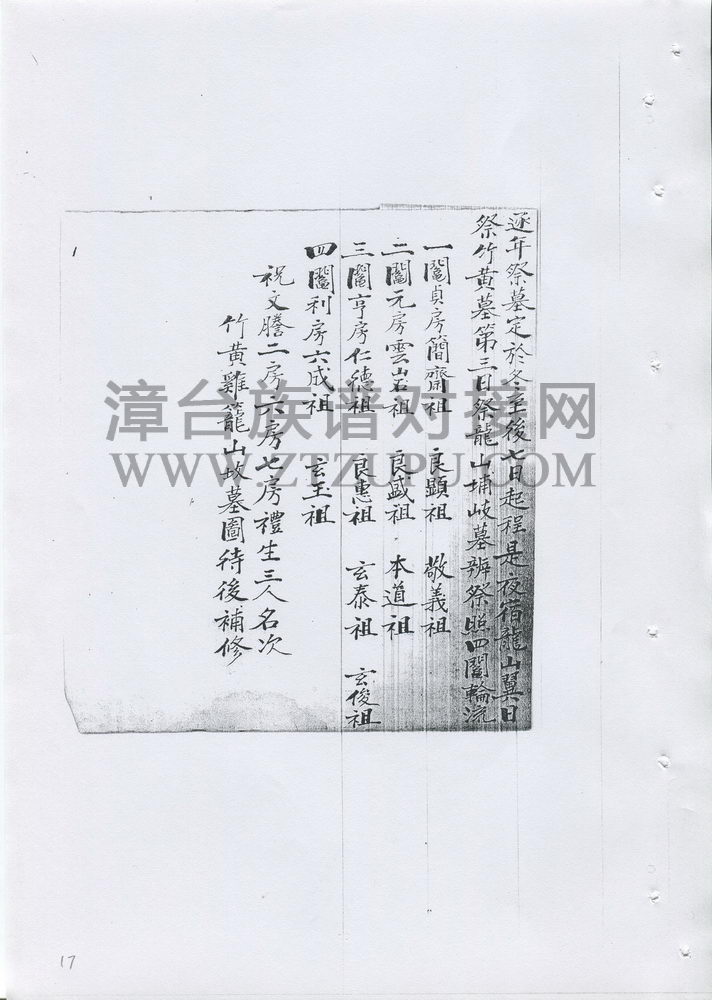 逐年祭墓定於冬至後七日起程是夜宿龍山翼日
祭竹黄墓第三日祭龍山埔岐墓辨祭照四鬮輪流
一鬮貞房簡齋祖 良顯祖 敬義祖
二鬮元房雲岩祖 良盛祖 本道祖
三鬮亨房仁德祖 良惠祖 玄泰祖 玄俊祖
四鬮利房六成祖 玄玉祖
祝文謄二房六房七房禮生三人名次
竹黄雞籠山坟墓圖待後補修
漳台族谱对接网
WWW.ZTZUPU.COM
17